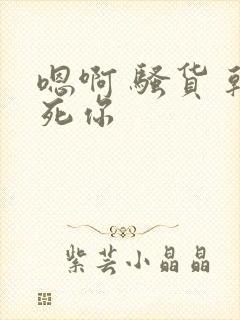 嗯啊骚货
死你
紫芸小晶晶